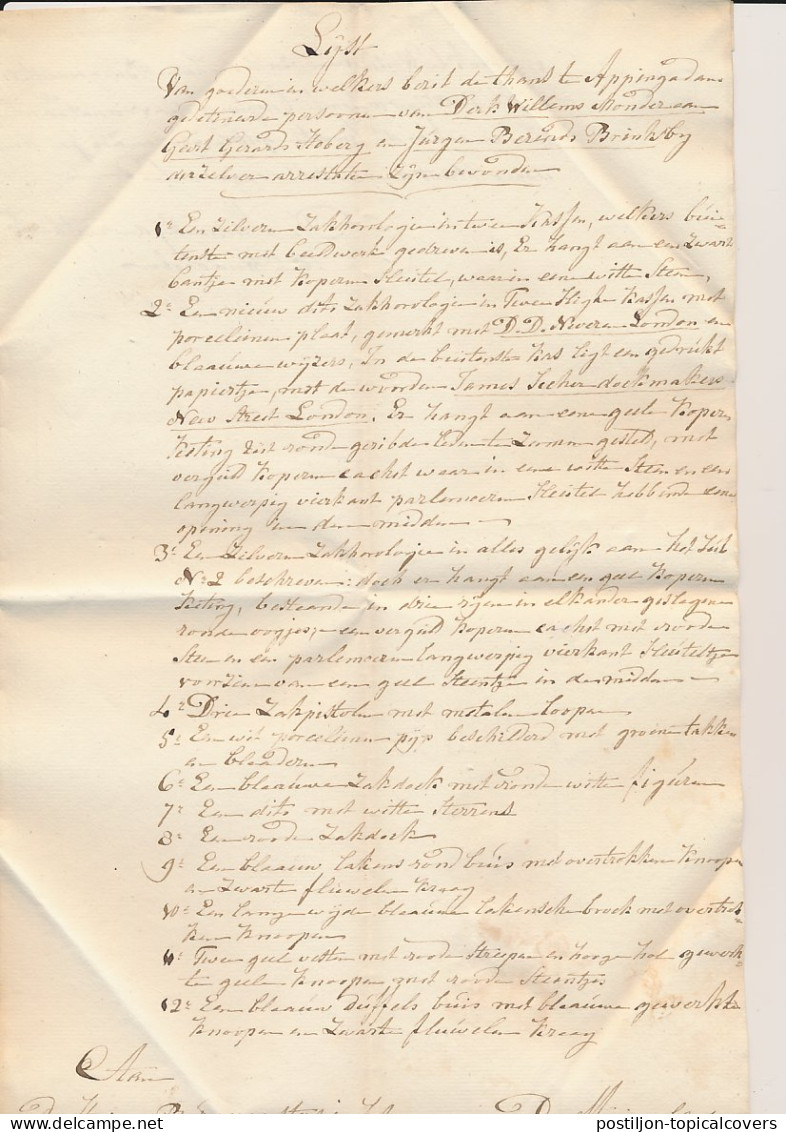 Lijst
Van goederen in welkers bezit de thans te Appingadam
gedetineerde persoonen van Derk Willems Monder en
Geert Gerards Hoberg en Jurgen Berends Brinksby
derzelver arrestatie zijn bevonden
1e Een Zilveren Zakhorologie in twee Kasjen, welkers buis=
tenste met beeldwerk gedreven is, Er hangt aan een Zwart
bantje met Koperen Sleutel, waarin een witte Steen,
2e Een nieuw dito Zakhorologie in Twee Kasjen met
porceleinen plaat, gemerkt met D. D. Neveren London en
blaauwe wijzers, In de buitenste Kas ligt een gedrukt
papiertje, met de woorden James clockmakers
New Street London. Er hangt aan eene geele Koper
Ketting uit ronde geribde leden te Zamen gesteld, met
verguld Koperen cachet waar in eene witte Steen en een
langwerpig vierkant parlemoeren Sleutel hebbende eene
opening in den midden
3e Een Zilveren Zakhorologie in alles gelijk aan het
No 2 beschreven: doch er hangt aan een geel Koperen
Keting, bestaande in drie rijen in elkander geslagene
ronde oogjes, een verguld Koperen cachet met roode
Steen en een parlemoeren langwerpig vierkant Sleuteltje
voorzien van een geel Steentje in de midden
4e Drie Zakpistolen met metalen Loopen
5e Een wit porceleinen pijp beschilderd met groene takken
en bladeren
6e Een blaauwe Zakdoek met ronde witte figuren
7e Een dito met witte Sterrens
8e Een roode Zakdoek
9e Een blaauw lakens rond buis met overtrokken Knoopen
en Zwarte fluwelen Kraag
10e Een lange wijde blaauwe lakensche broek met overtrok=
ken Knoopen
11e Twee geel vesten met roode Streepen en hooge hol gewerk=
te geele Knoopen, met roode Steentjes
12e Een blaauw duffels buis met blaauwe gewerkte
Knoopen en Zwarte fluwelen Kraag
Aan
postiljon-topicalcovers